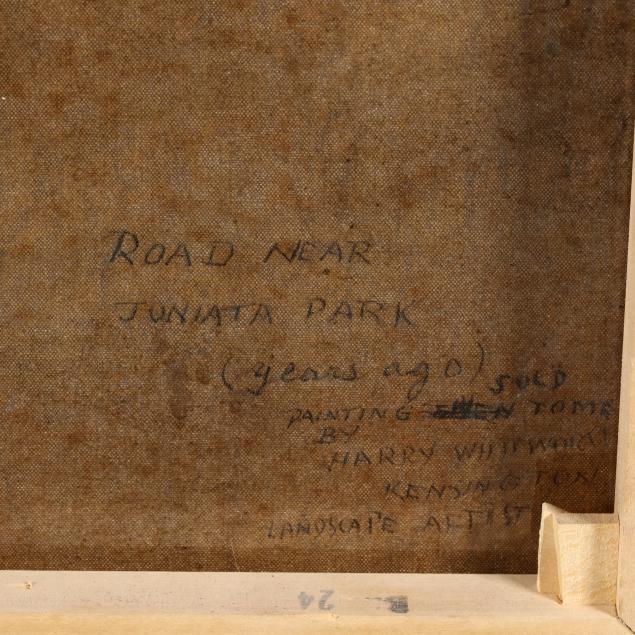 ROAD NEAR
JUNIATA PARK
(years ago)
SOLD
PAINTING TO ME
BY
HARRY
KENSINGTON
LANDSCAPE ARTIST
24